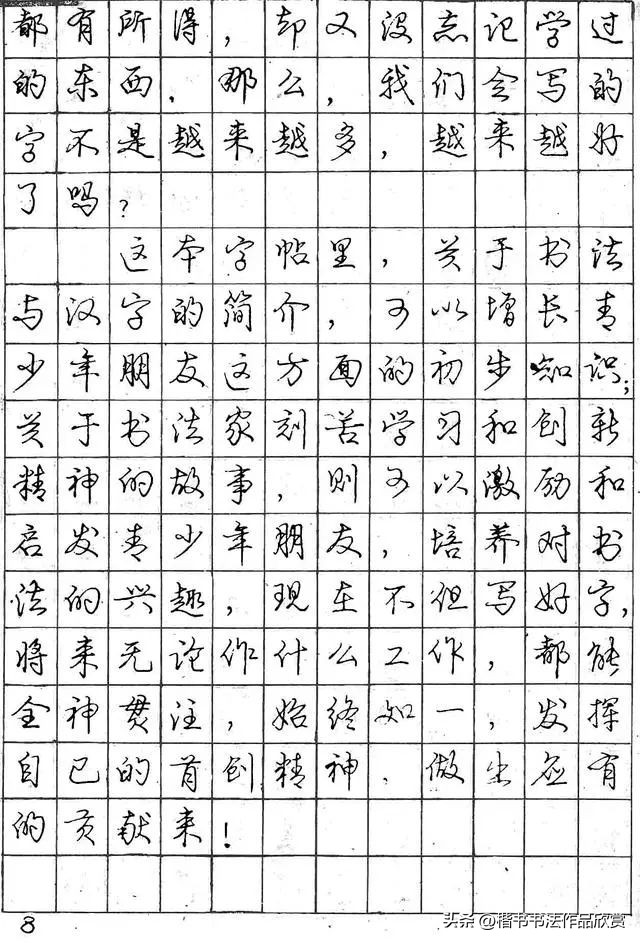 都有所得，却又没忘记学过
的东西，那么，我们会写的
字不是越来越多，越来越好
了吗？
这本字帖里，关于书法
与汉字的简介，可以增长青
少年朋友这方面的初步知识；
关于书法家刻苦学习和创新
精神的故事，则可以激励和
启发青少年朋友，培养对书
法的兴趣，现在不但写好字，
将来无论作什么工作，都能
全神贯注，始终如一，发挥
自己的首创精神，做出应有
的贡献来！
8
头条@楷书书法作品欣赏